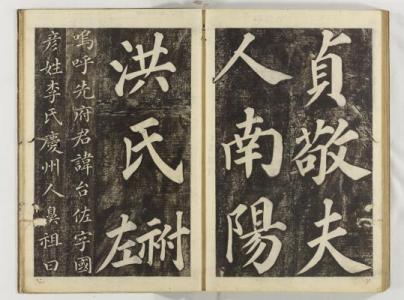 貞敬夫
人南陽
洪氏祔左
嗚呼先府君諱台佐字國
彦姓李氏慶州人鼻祖曰